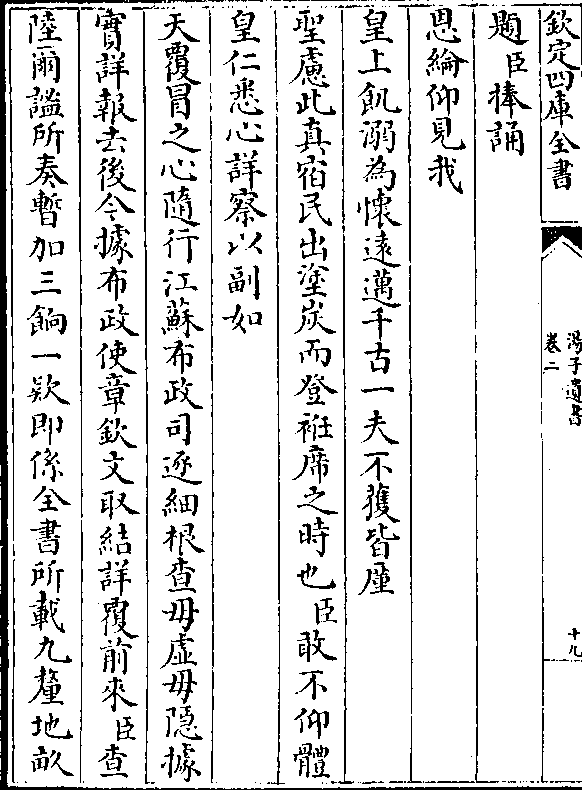 欽定四庫全書
湯子遺書
卷二
十九
題臣捧誦
恩綸仰見我
皇上飢溺為懷遠邁千古一夫不獲皆廑
聖慮此真宿民出塗炭而登袵席之時也臣敢不仰體
皇仁悉心詳察以副如
天覆冒之心隨行江蘇布政司逐細根查毋虛毋隱據
實詳報去後今據布政使章欽文取結詳覆前來臣查
陸爾謐所奏暫加三餉一欵即係全書所載九釐地畝